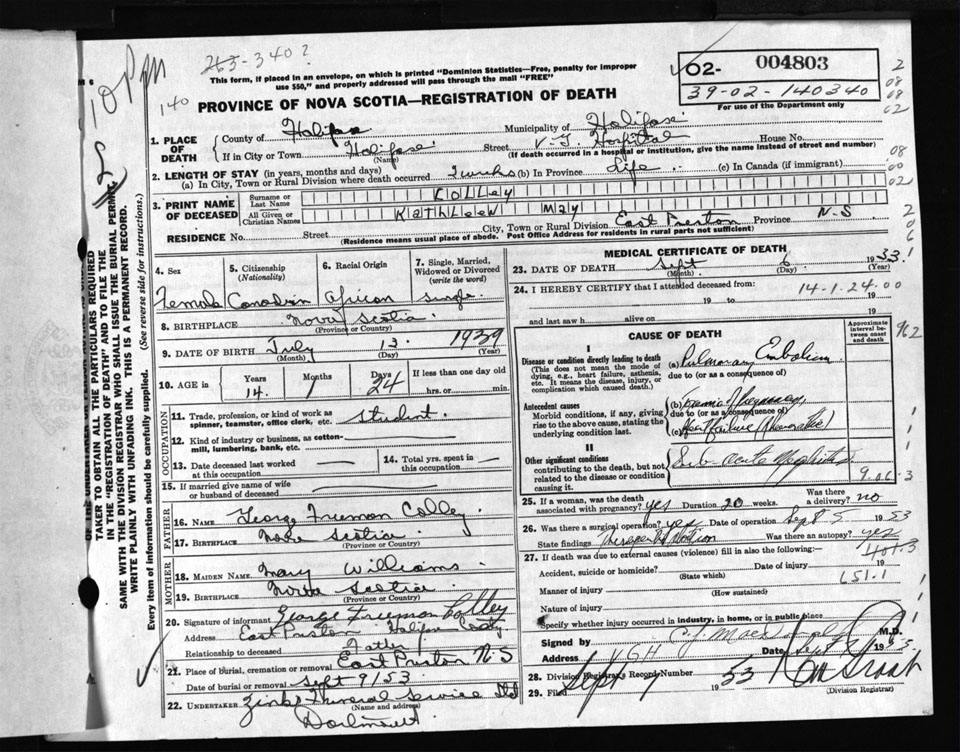 263-340?
10 PM
140
This form, if placed in an envelope, on which is printed "Dominion Statistics—Free, penalty for improper
use $50," and properly addressed will pass through the mail "FREE"
PROVINCE OF NOVA SCOTIA—REGISTRATION OF DEATH
02- 004803
39-02-140340
For use of the Department only
1. PLACE OF DEATH
County of Halifax Municipality of Halifax
If in City or Town Halifax Street V.G. Hospital House No.
(Name) (If death occurred in a hospital or institution, give the name instead of street and number)
2. LENGTH OF STAY (in years, months and days)
(a) In City, Town or Rural Division where death occurred 2 weeks (b) In Province Life (c) In Canada (if immigrant)
3. PRINT NAME OF DECEASED
Surname or Last Name COLLEY
All Given or Christian Names KATHLEEN MAY
RESIDENCE No. Street City, Town or Rural Division East Preston Province N-S
(Residence means usual place of abode. Post Office Address for residents in rural parts not sufficient)
4. Sex 5. Citizenship (Nationality) 6. Racial Origin 7. Single, Married, Widowed or Divorced (write the word)
Female Canadian African Single
8. BIRTHPLACE Nova Scotia
(Province or Country)
9. DATE OF BIRTH July 13. 1939
(Month) (Day) (Year)
10. AGE in Years Months Days If less than one day old
14. 1 24 hrs. or min.
OCCUPATION
11. Trade, profession, or kind of work as
spinner, teamster, office clerk, etc. Student.
12. Kind of industry or business, as cotton-
mill, lumbering, bank, etc.
13. Date deceased last worked
at this occupation
14. Total yrs. spent in
this occupation
15. If married give name of wife
or husband of deceased
FATHER
16. NAME George Freeman Colley
17. BIRTHPLACE Nova Scotia
(Province or Country)
MOTHER
18. MAIDEN NAME Mary Williams
19. BIRTHPLACE Nova Scotia
(Province or Country)
20. Signature of informant George Freeman Colley
Address East Preston Halifax Conty
Relationship to deceased Father
21. Place of burial, cremation or removal East Preston N-S
Date of burial or removal Sept 9/53
22. UNDERTAKER Zinks Funeral Service Ltd
(Name and address)
Dartmouth
MEDICAL CERTIFICATE OF DEATH
23. DATE OF DEATH Sept 6 1953
(Month) (Day) (Year)
24. I HEREBY CERTIFY that I attended deceased from: 14-1-24-00
19 to 19
and last saw h alive on 19
CAUSE OF DEATH
Approximate interval between onset and death
I
Disease or condition directly leading to death
(This does not mean the mode of
dying, e.g., heart failure, asthenia,
etc. It means the disease, injury, or
complication which caused death.)
(a) Pulmonary Embolism
due to (or as a consequence of)
Antecedent causes
Morbid conditions, if any, giving
rise to the above cause, stating the
underlying condition last.
(b) Pregnancy
due to (or as a consequence of)
(c) Heart failure (Rheumatic)
II
Other significant conditions
contributing to the death, but not
related to the disease or condition
causing it.
Sub-acute Nephritis
9.06.3
25. If a woman, was the death
associated with pregnancy? yes Duration 20 weeks. Was there a delivery? no
26. Was there a surgical operation? yes Date of operation Sept 5 1953
State findings Therapeutic Was there an autopsy? yes
27. If death was due to external causes (violence) fill in also the following:—
Accident, suicide or homicide? Date of injury 19
(State which)
651.1
Manner of injury
(How sustained)
Nature of injury
Specify whether injury occurred in industry, in home, or in public place
Signed by M.D.
Address V.G.H Date Sept 1953
28. Division Registrar's Record Number
29. Filed Sept 1953
(Division Registrar)
TAKER TO OBTAIN ALL THE PARTICULARS REQUIRED
IN THE "REGISTRATION OF DEATH" AND TO FILE THE
SAME WITH THE DIVISION REGISTRAR WHO SHALL ISSUE THE BURIAL PERMIT.
WRITE PLAINLY WITH UNFADING INK. THIS IS A PERMANENT RECORD.
Every item of information should be carefully supplied. (See reverse side for instructions.)